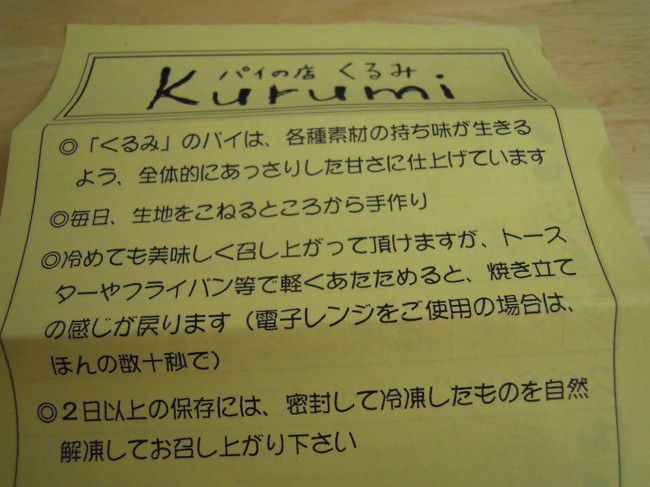 パイの店 くるみ
Kurumi
◎「くるみ」のパイは、各種素材の持ち味が生きる
よう、全体的にあっさりした甘さに仕上げています
◎毎日、生地をこねるところから手作り
◎冷めても美味しく召し上がって頂けますが、トース
ターやフライパン等で軽くあたためると、焼き立て
の感じが戻ります（電子レンジをご使用の場合は、
ほんの数十秒で）
◎２日以上の保存には、密封して冷凍したものを自然
解凍してお召し上がり下さい